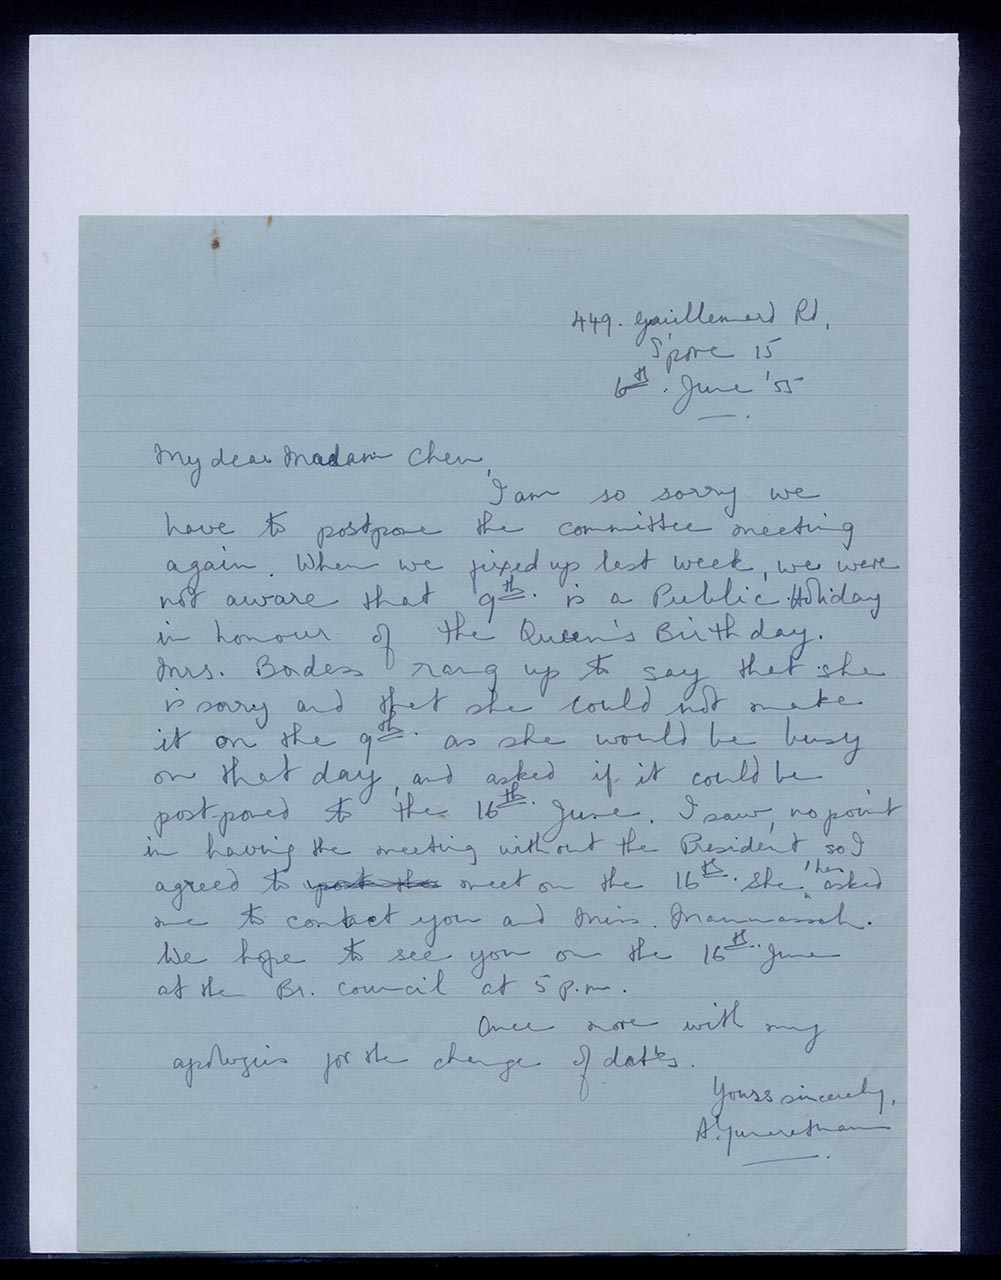 449. Guillemard Rd,
S'pore 15
6th. June '55
My dear Madam Chen,
I am so sorry we
have to postpone the committee meeting
again. When we fixed up last week, we were
not aware that 9th. is a Public Holiday
in honour of the Queen's Birthday.
Mrs. Bordess rang up to say that she
is sorry and that she could not make
it on the 9th. as she would be busy
on that day, and asked if it could be
post-poned to the 16th. June. I saw, no point
in having the meeting without the President, so I
agreed to post the meet on the 16th. She, then asked
me to contact you and Miss. Mannasseh.
We hope to see you on the 16th. June
at the Br. Council at 5 p.m.
Once more with my
apologies for the change of dates.
Yours sincerely,